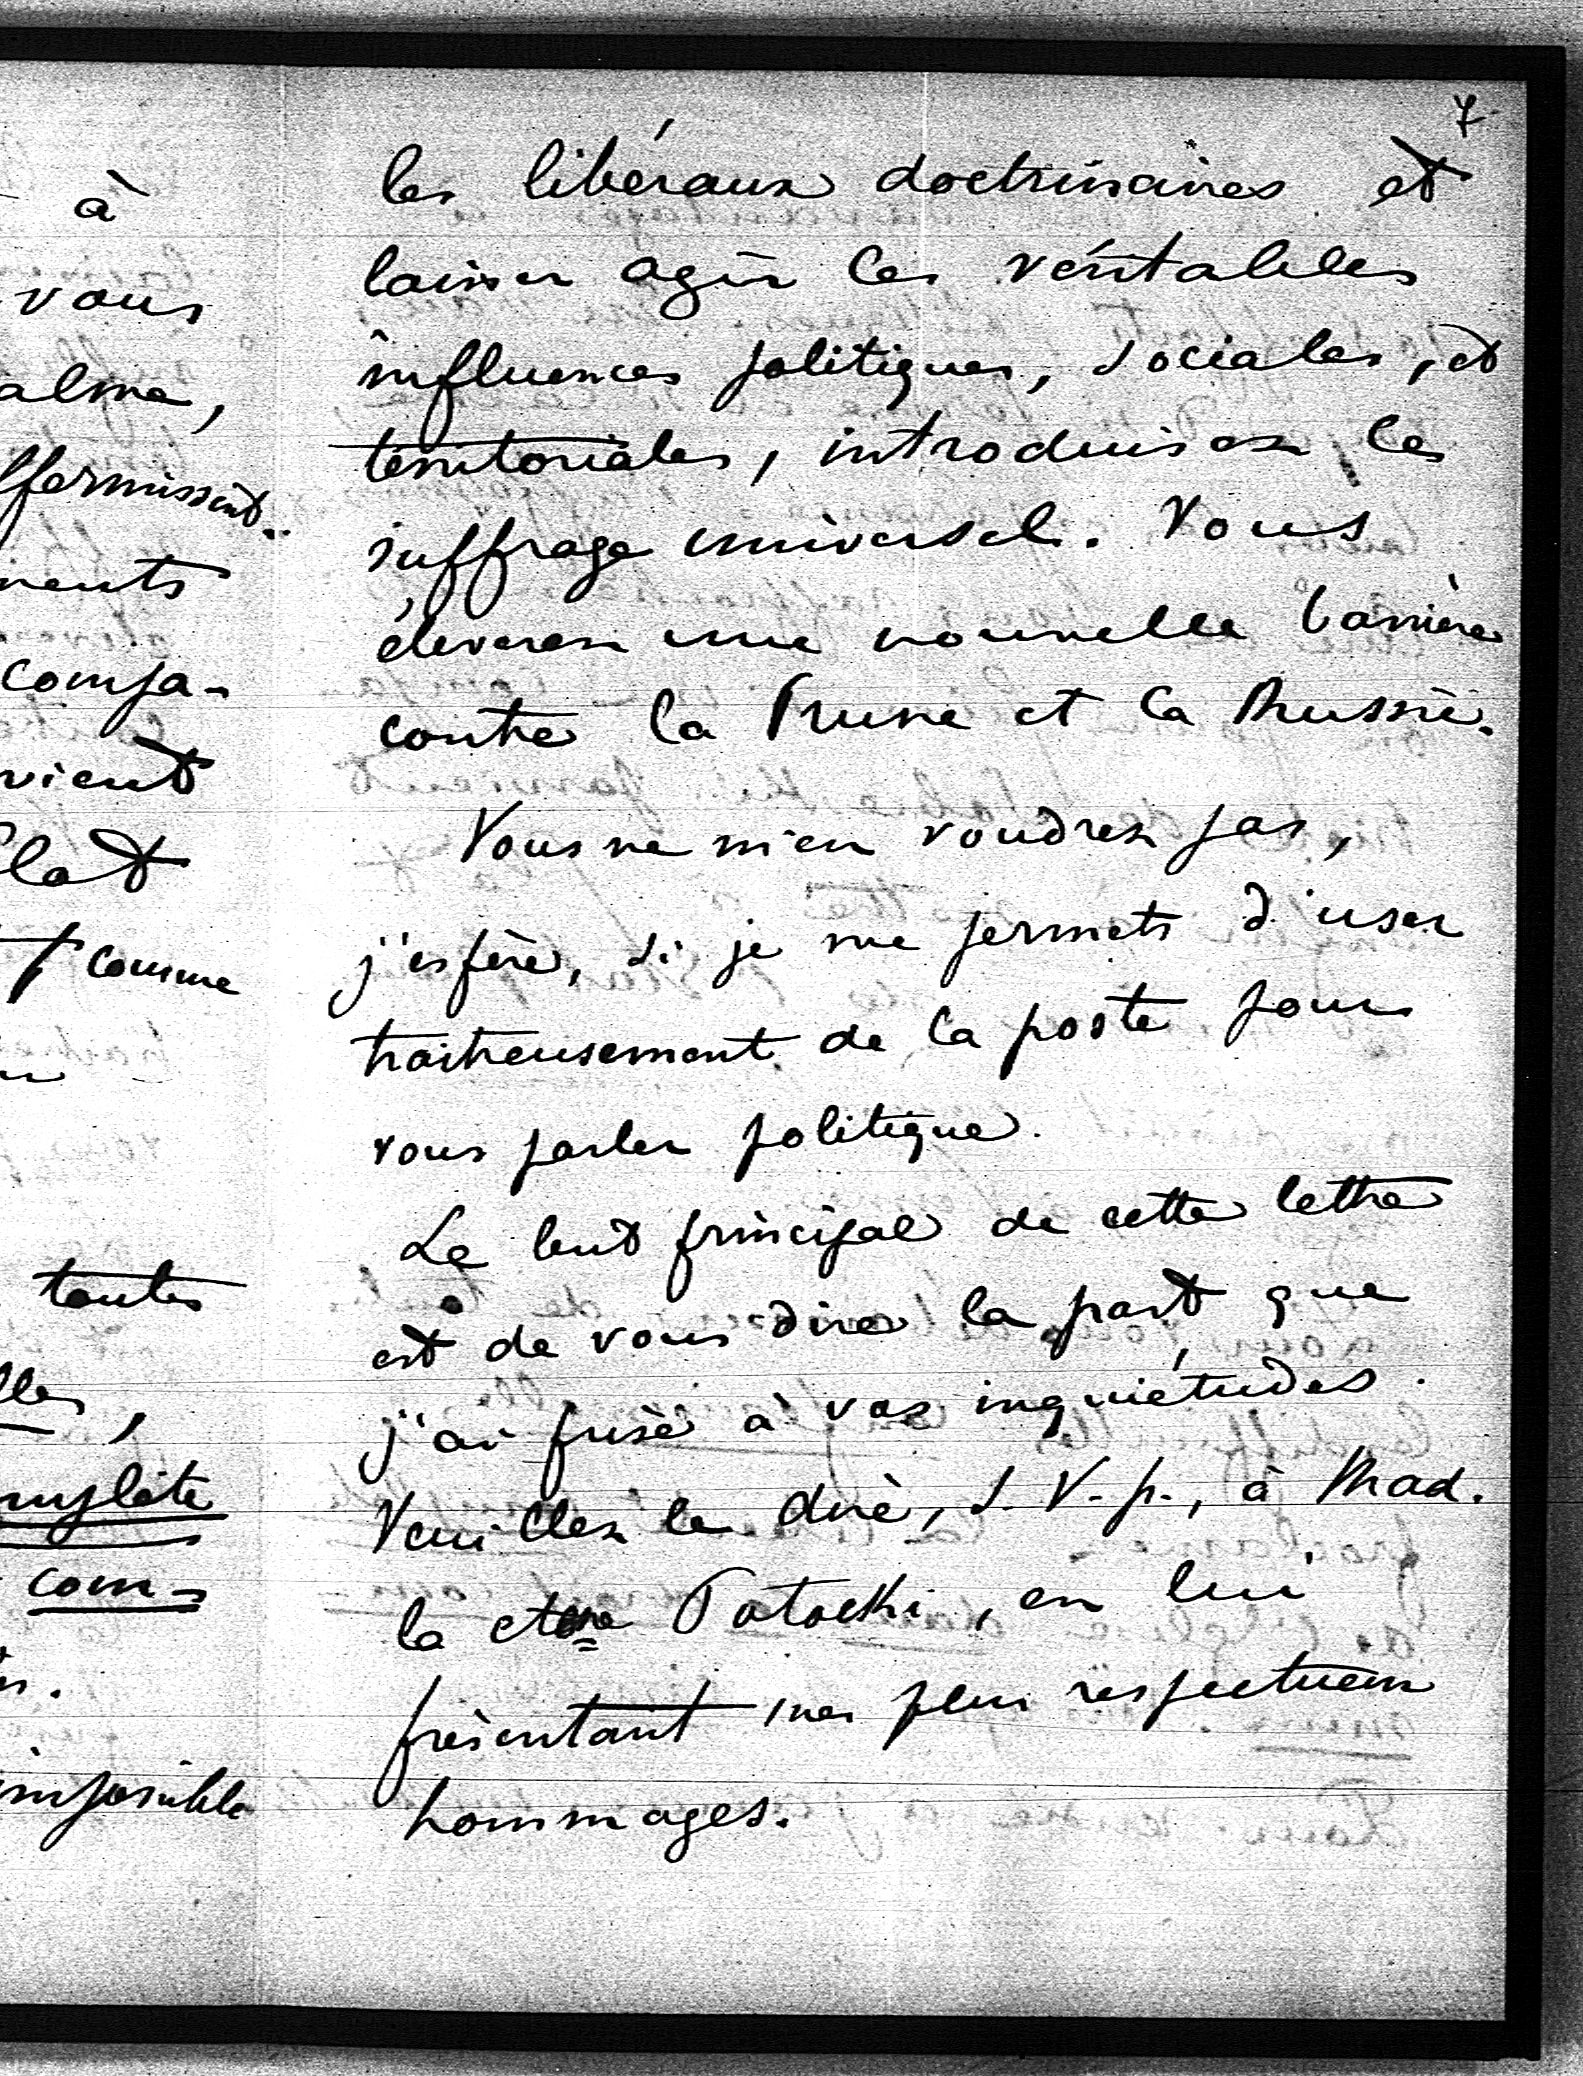 7
à
vous
alme,
ffermissent..
ments
compa-
vient
lat
comme
toutes
lles,
mplète
com-
impossible
les libéraux doctrinaires et
laisser agir les véritables
influences politiques, sociales, et
territoriales, introduisez le
suffrage universel. Vous
éleverez une nouvelle barrière
contre la Prusse et la Russie.
Vous ne m'en voudrez pas,
j'espère, si je me permets d'user
traitreusement de la poste pour
vous parler politique.
Le but principal de cette lettre
est de vous dire la part que
j'ai prise à vos inquiétudes.
Veuillez le dire, s. V. p., à Mad.
la ctesse Potocki, en lui
présentant mes plus respectueux
hommages.